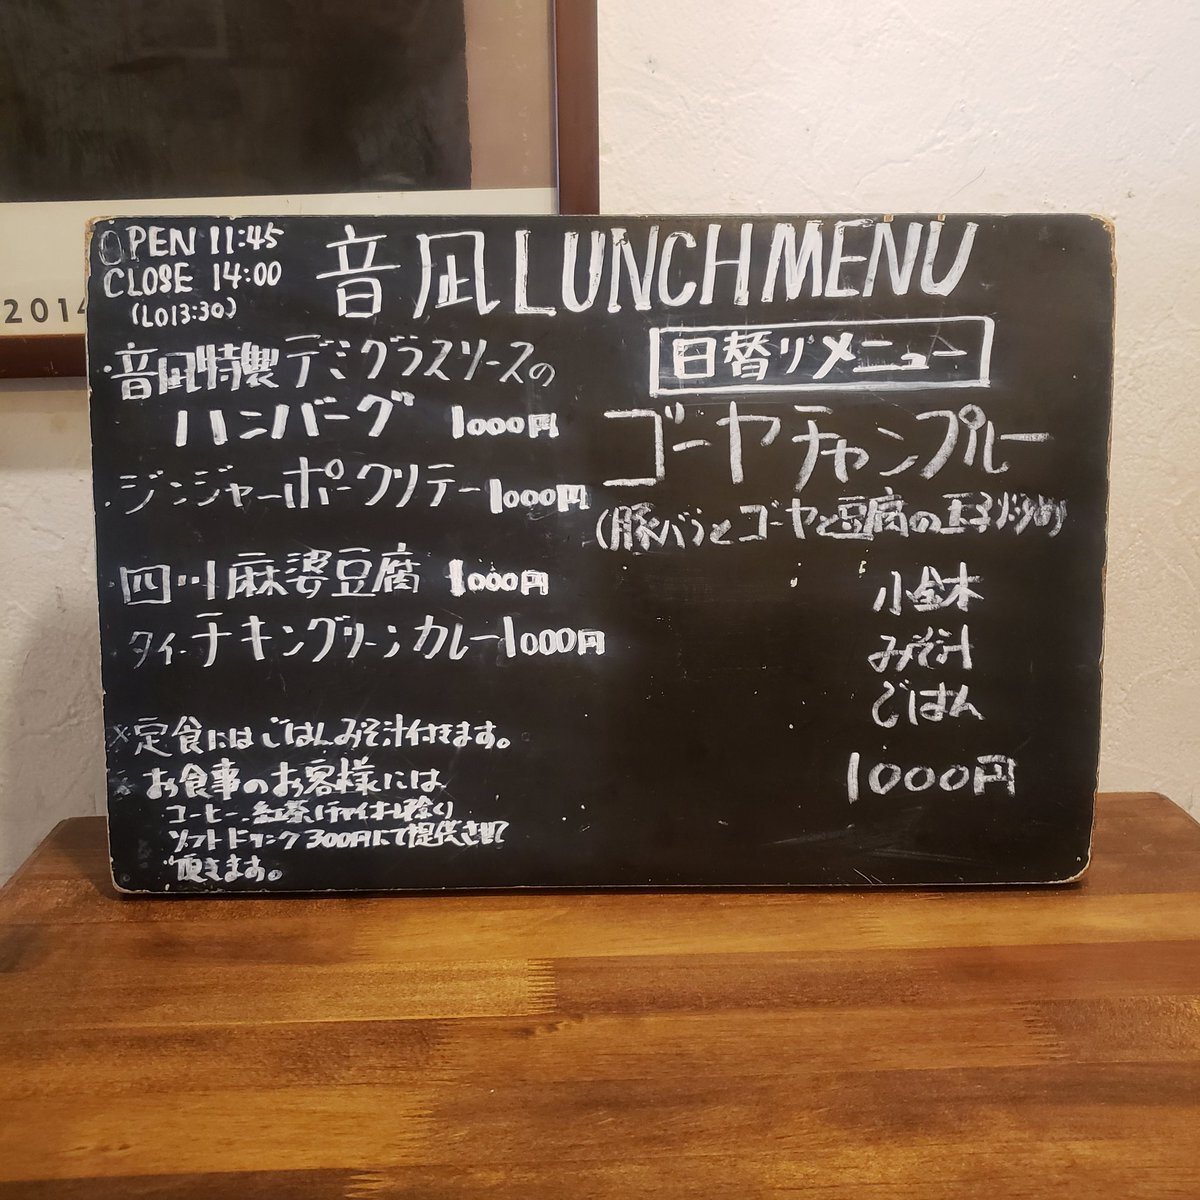 2014
OPEN 11:45
CLOSE 14:00
(LO13:30)
音凪LUNCHMENU
・音凪特製デミグラスソースの
ハンバーグ 1000円
・ジンジャーポークソテー1000円
・四川麻婆豆腐 1000円
タイ・チキングリーンカレー1000円
※定食にはごはんみそ汁付きます。
※お食事のお客様には
コーヒー、紅茶、(チャイオーレ除く)
ソフトドリンク300円にて提供させて
頂きます。
日替りメニュー
ゴーヤチャンプルー
(豚バラとゴーヤと豆腐の玉子炒め)
小鉢
みそ汁
ごはん
1000円